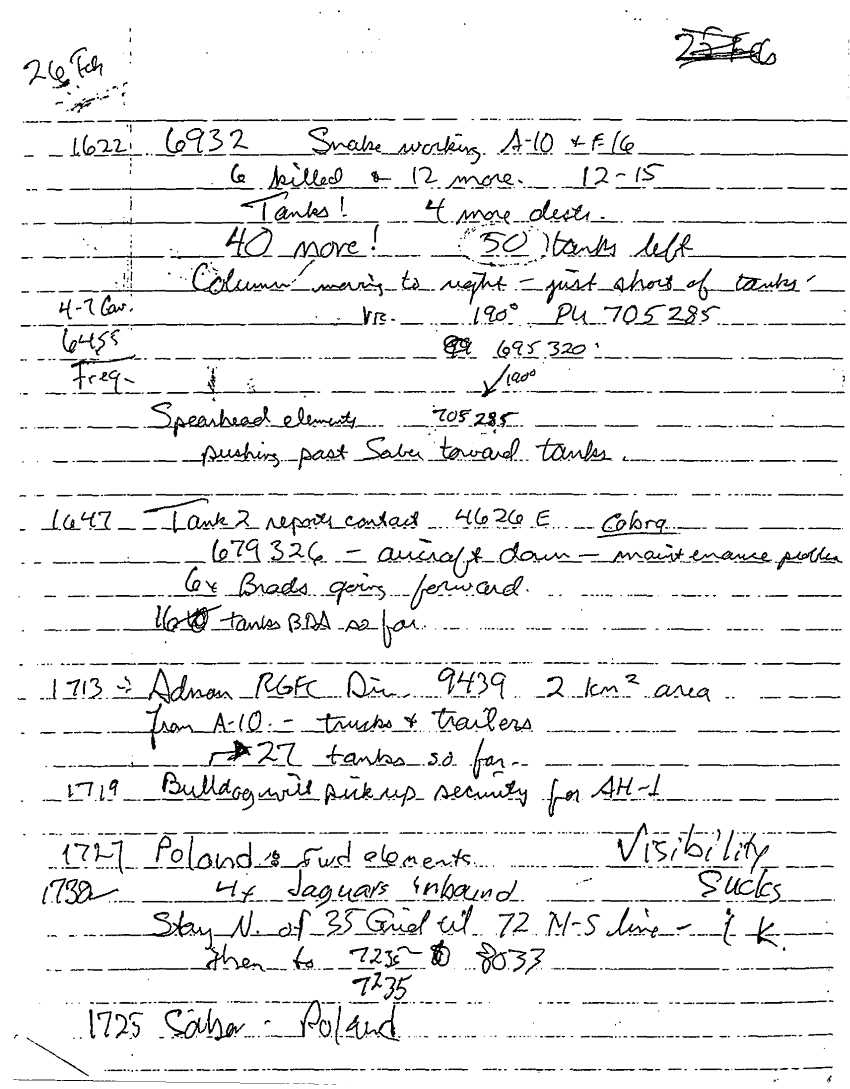 26 Feb
1622 6932 Snake working A-10 & F-16
6 killed & 12 more. 12-15
Tanks! 4 more destr.
40 more! 50 tanks left
Column moving to right - just short of tanks
4-7 Cav. 190° PU 705285
6455 695320
Freq- 190°
Spearhead elements 705285
pushing past Saber toward tanks.
1647 Tank 2 reports contact 4626 E Cobra
679326 - aircraft down - maintenance
6x Brads going forward.
tanks BDA so far.
1713 - Adnan RGFC Div. 9439 2 km² area
From A-10. - trucks & trailers
→ 27 tanks so far-
1719 Bulldog will pick up security for AH-1
1727 Poland & Fwd elements Visibility
4x Jaguars inbound Sucks
Stay N. of 35 Grid til 72 N-S line - 1 K.
then to 8033
7235
1725 Saber - Poland